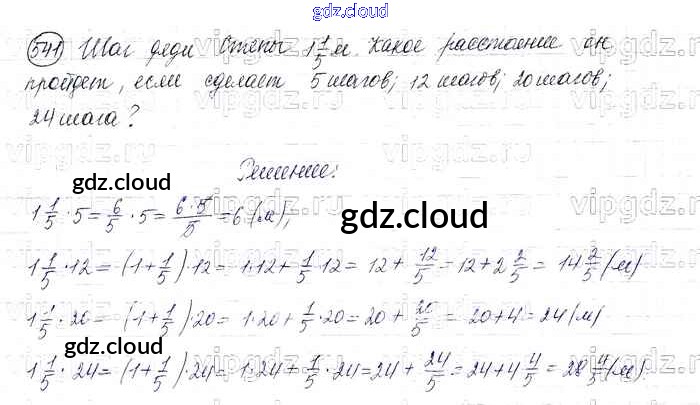 gdz.cloud
541 Шаг дяди Степы 1 1/5 м. Какое расстояние он
пройдет, если сделает 5 шагов; 12 шагов; 20 шагов;
24 шага?
Решение:
gdz.cloud
1 1/5 · 5 = 6/5 · 5 = (6·5)/5 = 6 (м),
gdz.cloud
1 1/5 · 12 = (1 + 1/5) · 12 = 1·12 + 1/5 · 12 = 12 + 12/5 = 12 + 2 2/5 = 14 2/5 (м)
1 1/5 · 20 = (1 + 1/5) · 20 = 1·20 + 1/5 · 20 = 20 + 20/5 = 20 + 4 = 24 (м)
gdz.cloud
1 1/5 · 24 = (1 + 1/5) · 24 = 1·24 + 1/5 · 24 = 24 + 24/5 = 24 + 4 4/5 = 28 4/5 (м).